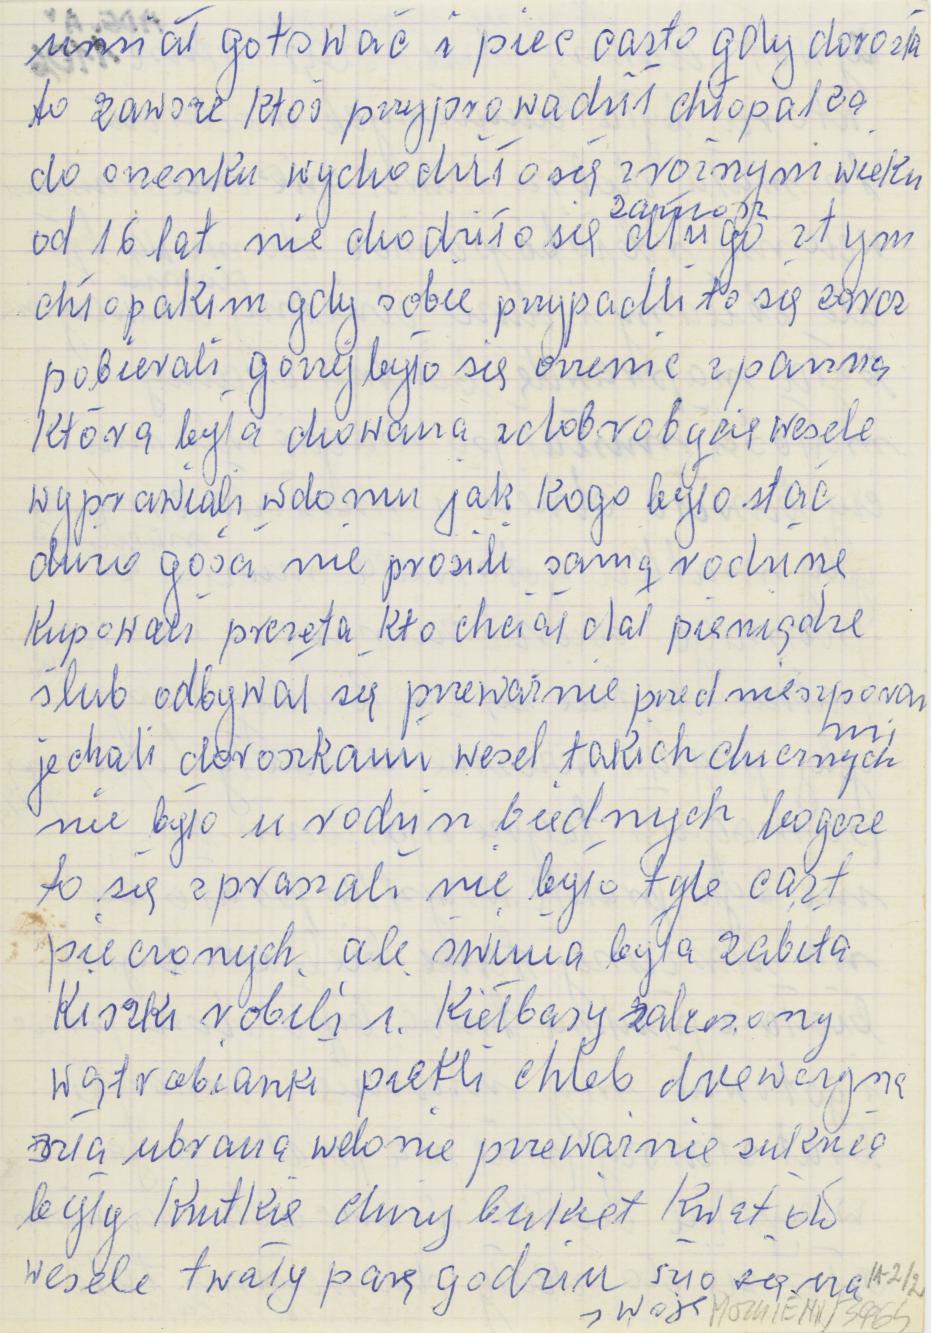 umiał gotować i piec casto gdy dorosła
to zawsze ktoś przyprowadził chłopalca
do orzenku wychodziło się zrożnym wieku
od 16 lat nie chodziło się zamosz długo z tym
chłopakim gdy sobie przypadli to się zaraz
pobierali gorzej było się orzenic z panną
Która była chowana zdobrobycie wesele
wyprawiali wdomu jak kogo było stać
duzo gości nie prosili samą rodzinę
Kupowali prezęta kto chciał dał pieniądze
ślub odbywał się przeważnie przed nieszporami
jechali doroszkami wesel takich chucznych
nie było u rodzin biednych bogcze
to się zpraszali nie było tyle cast
pieczonych ale świnia była zabita
Kiszki robili i. Kiełbasy salcesony
wątrobianki piekli chleb drzewczyna
szła ubrana welonie przeważnie suknia
były Krutkie duzy bukiet kwiatów
wesele twały parę godzin szło się na
swoje